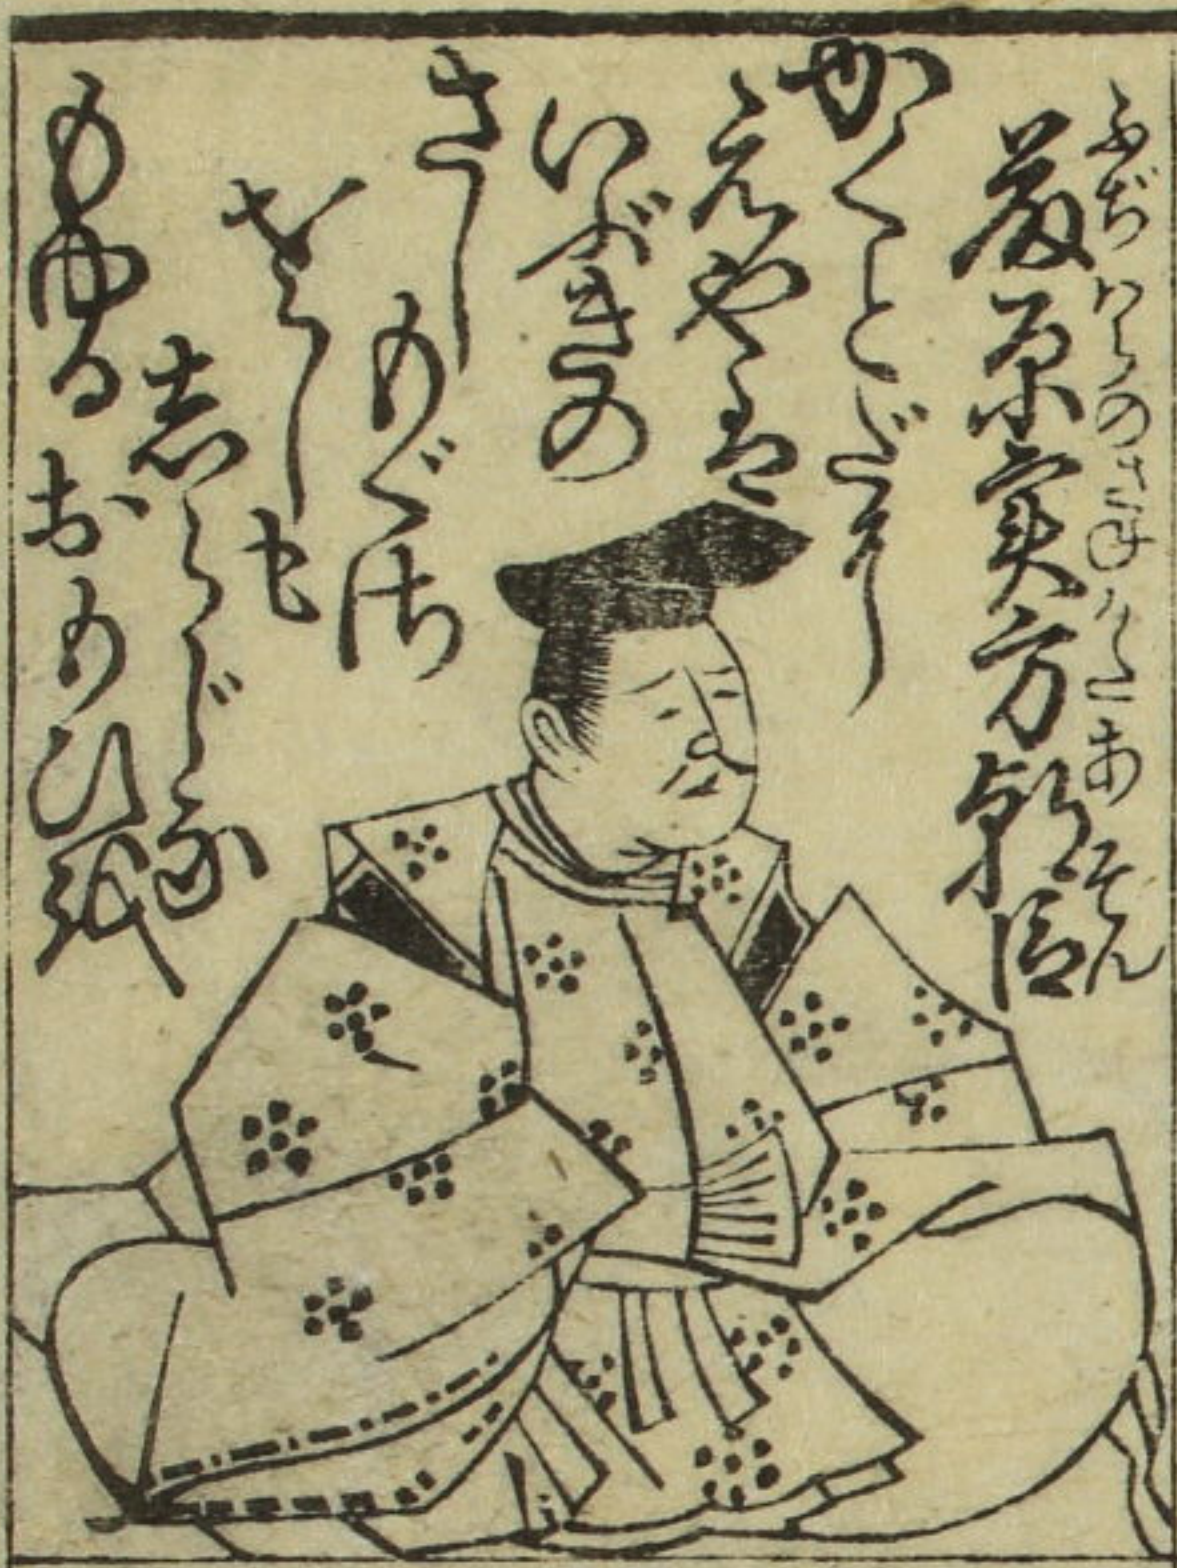 ふぢはらのさねかたあそん
藤原実方朝臣
かくとだに
えやは
いぶきの
さし
もぐさ
さしも
しらじな
もゆるおもひを